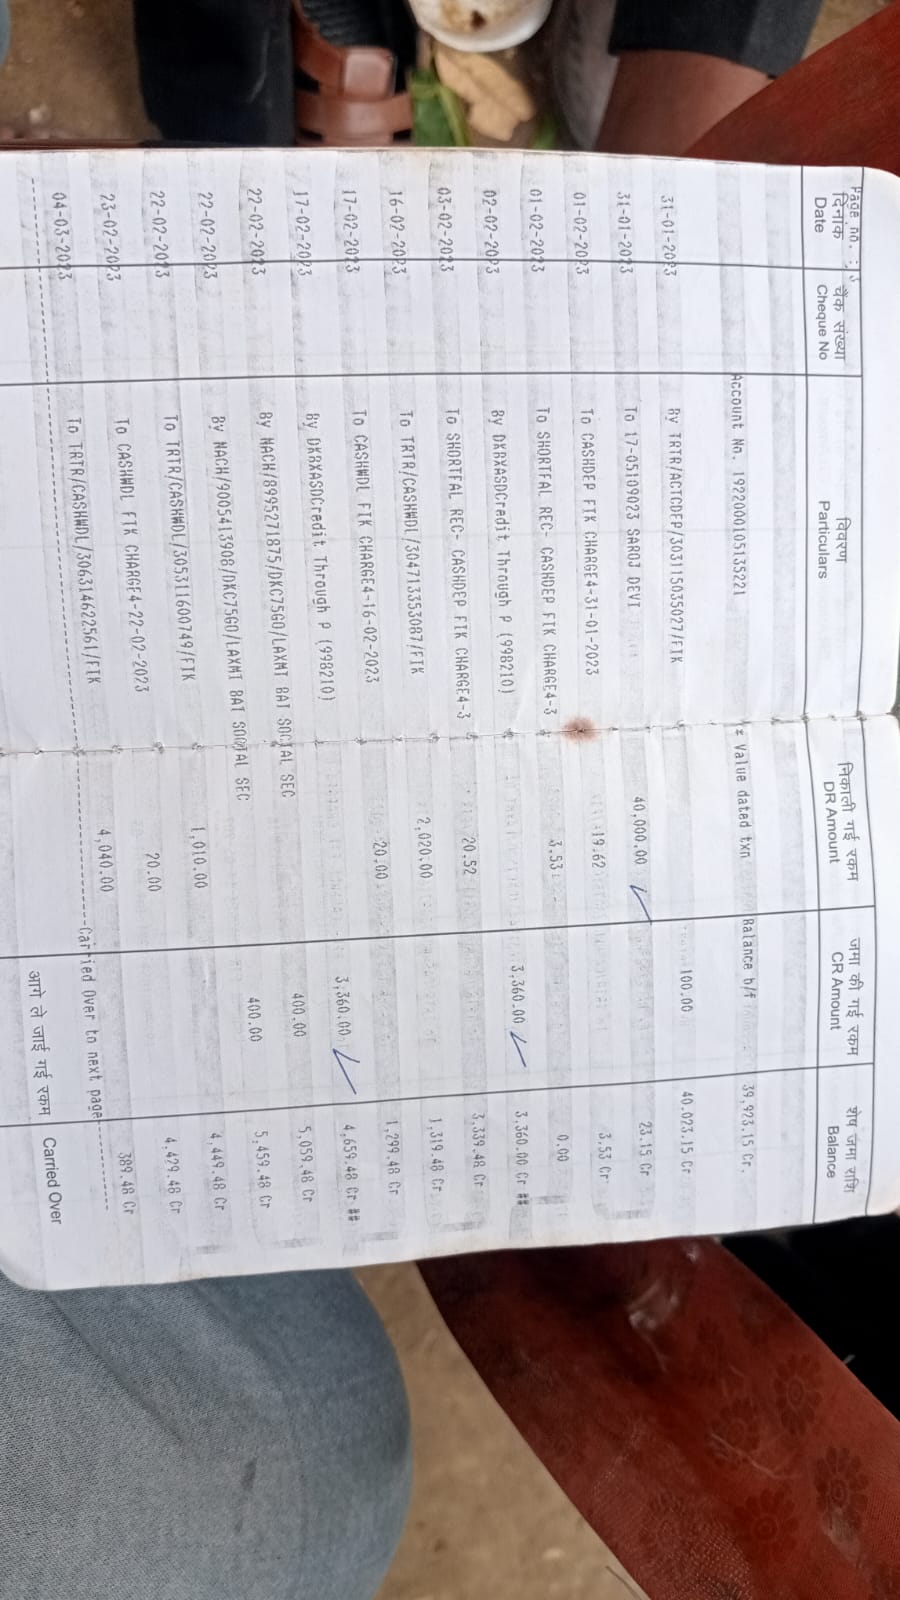 Page no. : 3
दिनांक चैक संख्या विवरण निकाली गई रकम जमा की गई रकम शेष जमा राशि
Date Cheque No Particulars DR Amount CR Amount Balance
Account No. 19220001051 35221 * Value dated txn Balance b/f 39,923.15 Cr.
31-01-2023 By TRTR/ACTCDEP/303115035027/FIK 100.00 40,023.15 Cr
31-01-2023 To 17-05109023 SAROJ DEVI 40,000.00 23.15 Cr
01-02-2023 To CASHDEP FIK CHARGE4-31-01-2023 19.62 3.53 Cr
01-02-2023 To SHORTFAL REC- CASHDEP FIK CHARGE4-3 3.53 0.00
02-02-2023 By DKBXASDCredit Through P (998210) 3,360.00 3,360.00 Cr ##
03-02-2023 To SHORTFAL REC- CASHDEP FIK CHARGE4-3 20.52 3,339.48 Cr
16-02-2023 To TRTR/CASHWDL/304713353087/FIK 2,020.00 1,319.48 Cr
17-02-2023 To CASHWDL FIK CHARGE4-16-02-2023 20.00 1,299.48 Cr
17-02-2023 By DKBXASDCredit Through P (998210) 3,360.00 4,659.48 Cr ##
22-02-2023 By NACH/8995271875/DKC75GO/LAXMI BAI SOCIAL SEC 400.00 5,059.48 Cr
22-02-2023 By NACH/9005413908/DKC75GO/LAXMI BAI SOCIAL SEC 400.00 5,459.48 Cr
22-02-2023 To TRTR/CASHWDL/305311600749/FIK 1,010.00 4,449.48 Cr
23-02-2023 To CASHWDL FIK CHARGE4-22-02-2023 20.00 4,429.48 Cr
04-03-2023 To TRTR/CASHWDL/306314622561/FIK 4,040.00 389.48 Cr
Carried Over to next page
आगे ले जाई गई रकम Carried Over